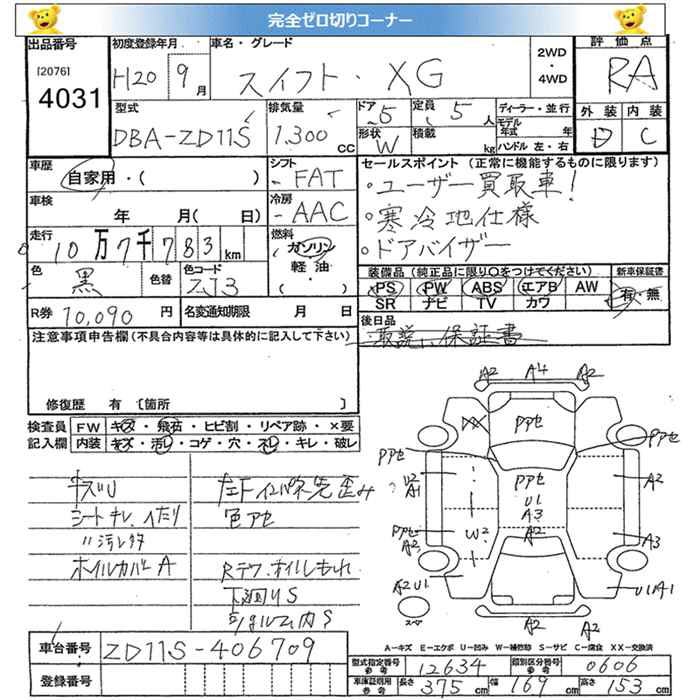 完全ゼロ切りコーナー
出品番号
[2076]
4031
初度登録年月
H20 9月
車名・グレード
スイフト・XG
2WD
・
4WD
評価点
RA
外装 内装
D C
型式
DBA-ZD11S
排気量
1,300 cc
ドア 5
形状 W
定員 5人
積載 kg
ディーラー・並行
モデル年式 年
ハンドル 左・右
車歴
自家用・( )
シフト
FAT
車検
年 月( 日)
冷房
AAC
走行
10万7千783km
燃料
ガソリン
軽油・
( )
色 黒 色替
色コード
ZJ3
R券 10,090円
名変通知期限 月 日
セールスポイント(正常に機能するものに限ります)
・ユーザー買取車!
・寒冷地仕様
・ドアバイザー
装備品(純正品に限り○をつけてください)
PS PW ABS エアB AW
SR ナビ TV カワ
新車保証書
有・無
後日品
取説、保証書
注意事項申告欄(不具合内容等は具体的に記入して下さい)
修復歴 有〔箇所 〕
検査員記入欄
FW キズ・飛石・ヒビ割・リペア跡・×要
内装 キズ・汚レ・コゲ・穴・スレ・キレ・破レ
キズU
シートチレ、イたり
〃汚レ多
ホイルカバーA
左Fインパネ先歪み
色アセ
Rデフ、オイルもれ
下廻りS
シャルム内S
A2 A4 A2
XX
Pアセ
Pアセ
Pアセ
U2
A1
Pアセ
U1
A3
A2
A2
W2
Pアセ
A2
A3
A2U1
U1A1
A2 A2
スペア
A-キズ E-エクボ U-凹み W-補修跡 S-サビ C-腐食 XX-交換済
車台番号 ZD11S-406709
登録番号
型式指定番号 参考 12634
類別区分番号 参考 0606
車庫証明用 参考 長さ 375cm 幅 169cm 高さ 153cm